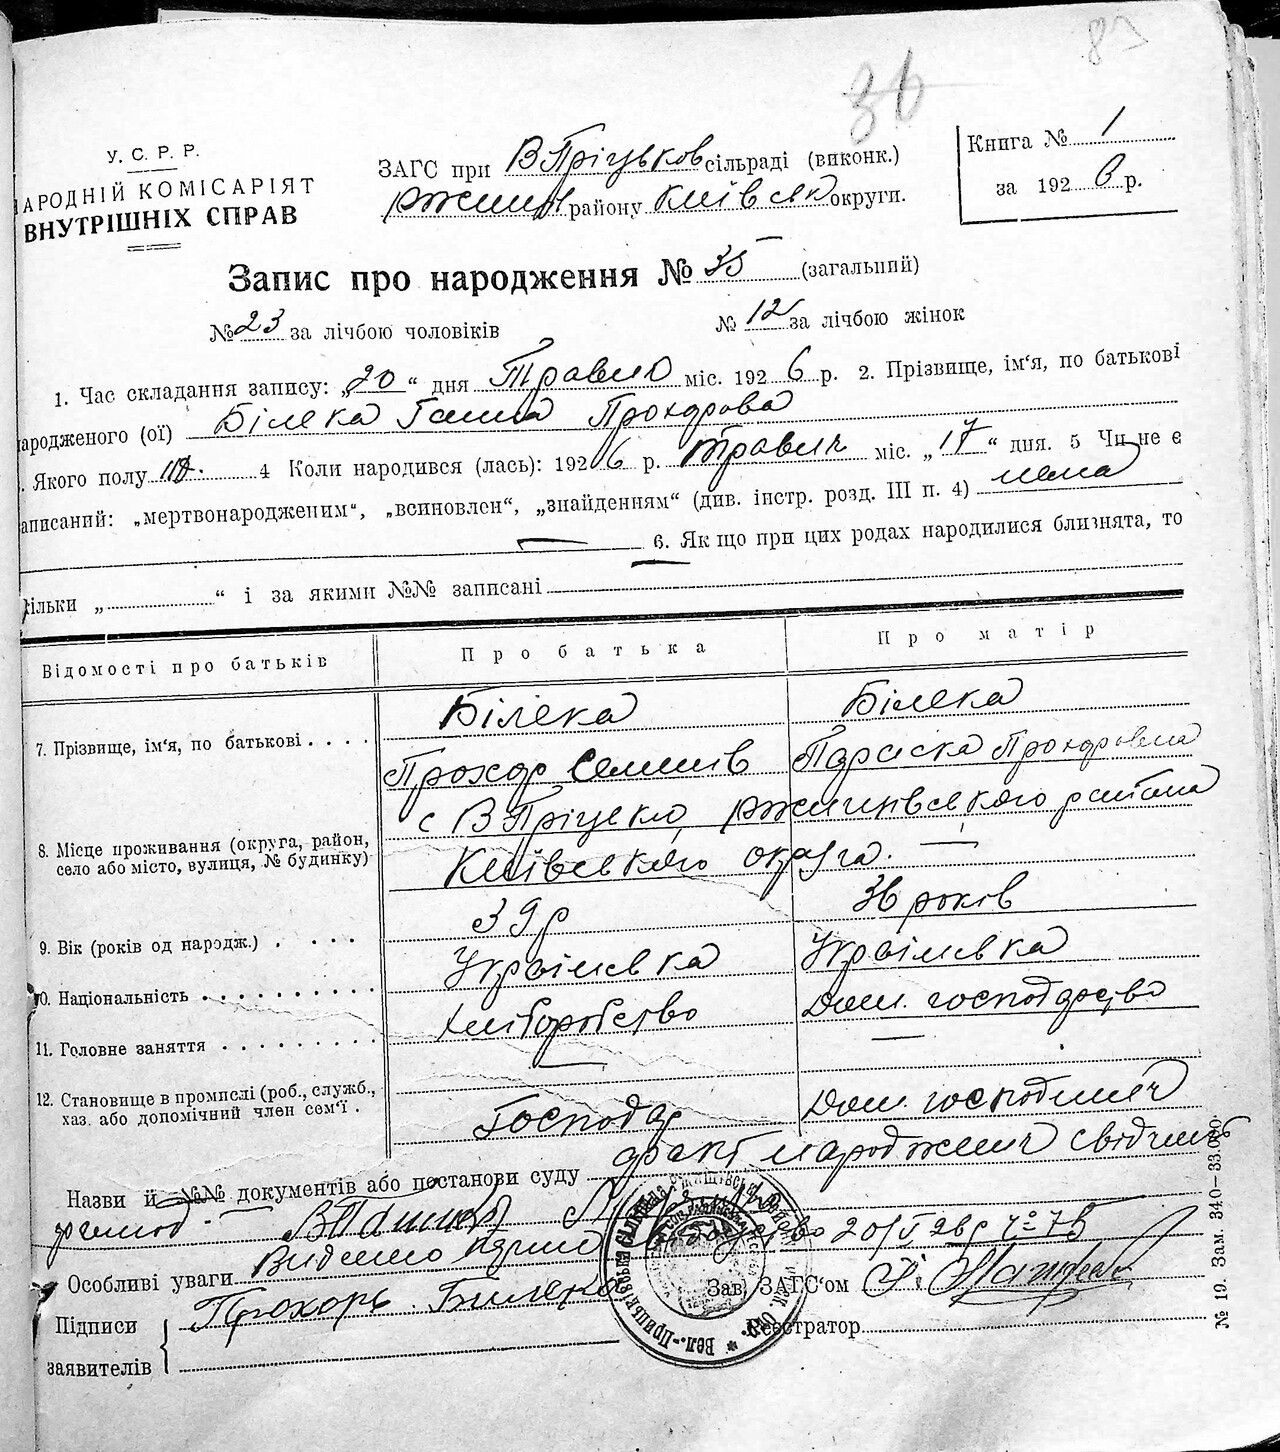 36
У. С. Р. Р.
АРОДНІЙ КОМІСАРІЯТ
ВНУТРІШНІХ СПРАВ
ЗАГС при В Пріцьков сільраді (виконк.)
Ржищів району Київськ округи.
Книга № 1
за 1926 р.
Запис про народження № 35 (загальний)
№ 23 за лічбою чоловіків № 12 за лічбою жінок
1. Час складання запису: „20“ дня Травню міс. 1926 р. 2. Прізвище, ім'я, по батькові
ародженого (ої) Білека Ганна Прохорова
. Якого полу 4 Коли народився (лась): 1926 р. травня міс. „17“ дня. 5 Чи не є
аписаний: „мертвонародженим“, „всиновлен“, „знайденням“ (див. інстр. розд. III п. 4) нема
6. Як що при цих родах народилися близнята, то
кільки „ “ і за якими №№ записані
Відомості про батьків Про батька Про матір
7. Прізвище, ім'я, по батькові . . . .
Білека Білека
Прохор Семенів Париска Прохоровна
8. Місце проживання (округа, район, село або місто, вулиця, № будинку)
с В Пріцько, Ржищівського района
Київського округа. —
9. Вік (років од народж.) . . . .
39 р 36 років
10. Національність . . . . . . . . . .
Українка Українка
11. Головне заняття . . . . . . . . .
хліборобство Дом. господарство
12. Становище в промислі (роб., служб., хаз. або допомічний член сем'ї .
Господар Дом. господиня
Назви й №№ документів або постанови суду факт народження свідчить
Особливі уваги Видано 20/V 26 р № 75
Зав. ЗАГС'ом
Підписи заявителів Прохоръ Билека
Реєстратор
№ 19. Зам. 340—33.000.